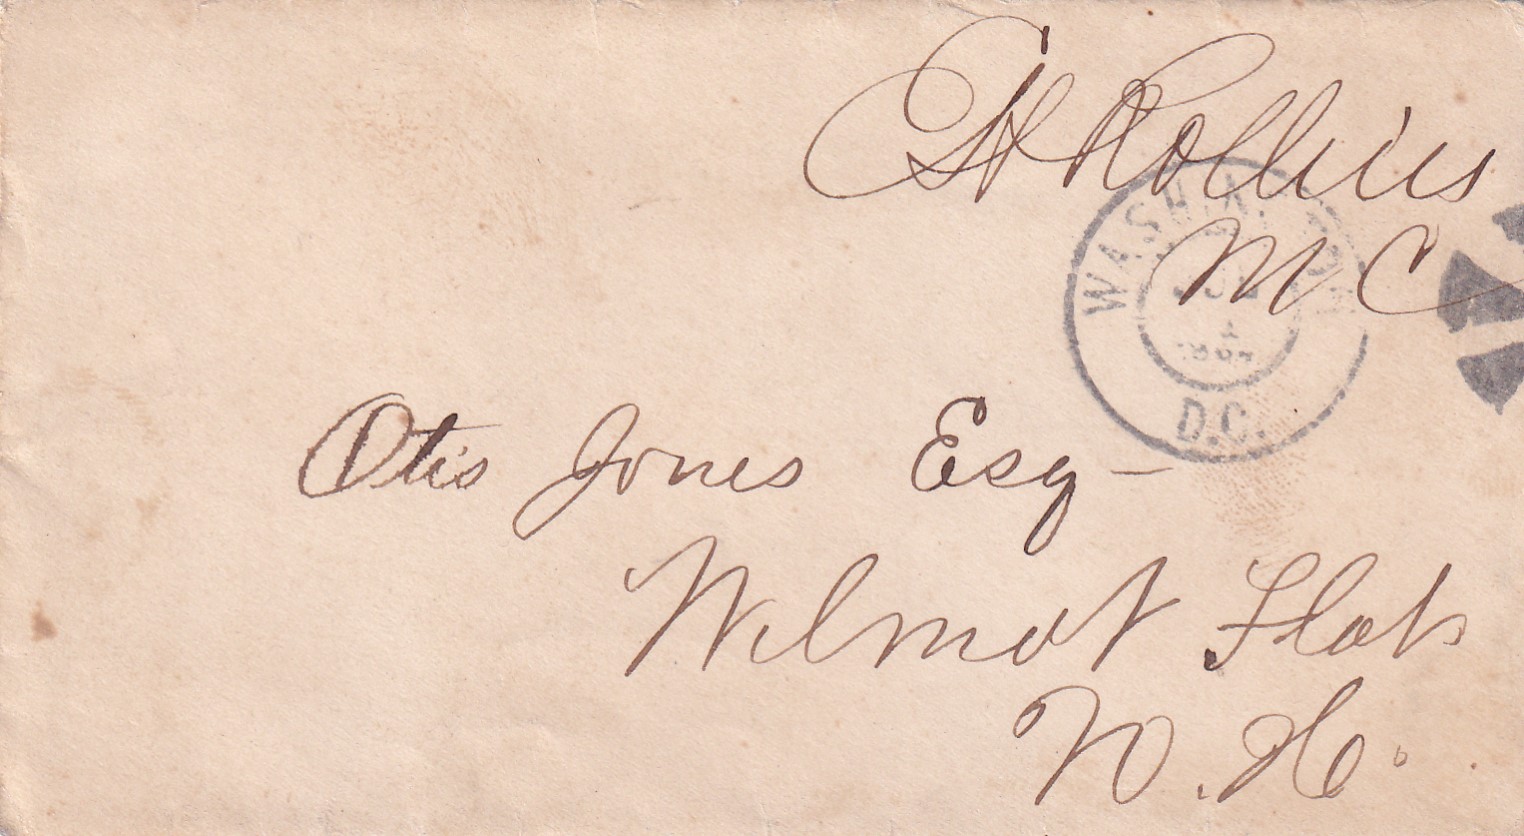 EH Rollins
MC
WASHINGTON
D.C.
Otis Jones Esq-
Wilmot Flats
N. H.